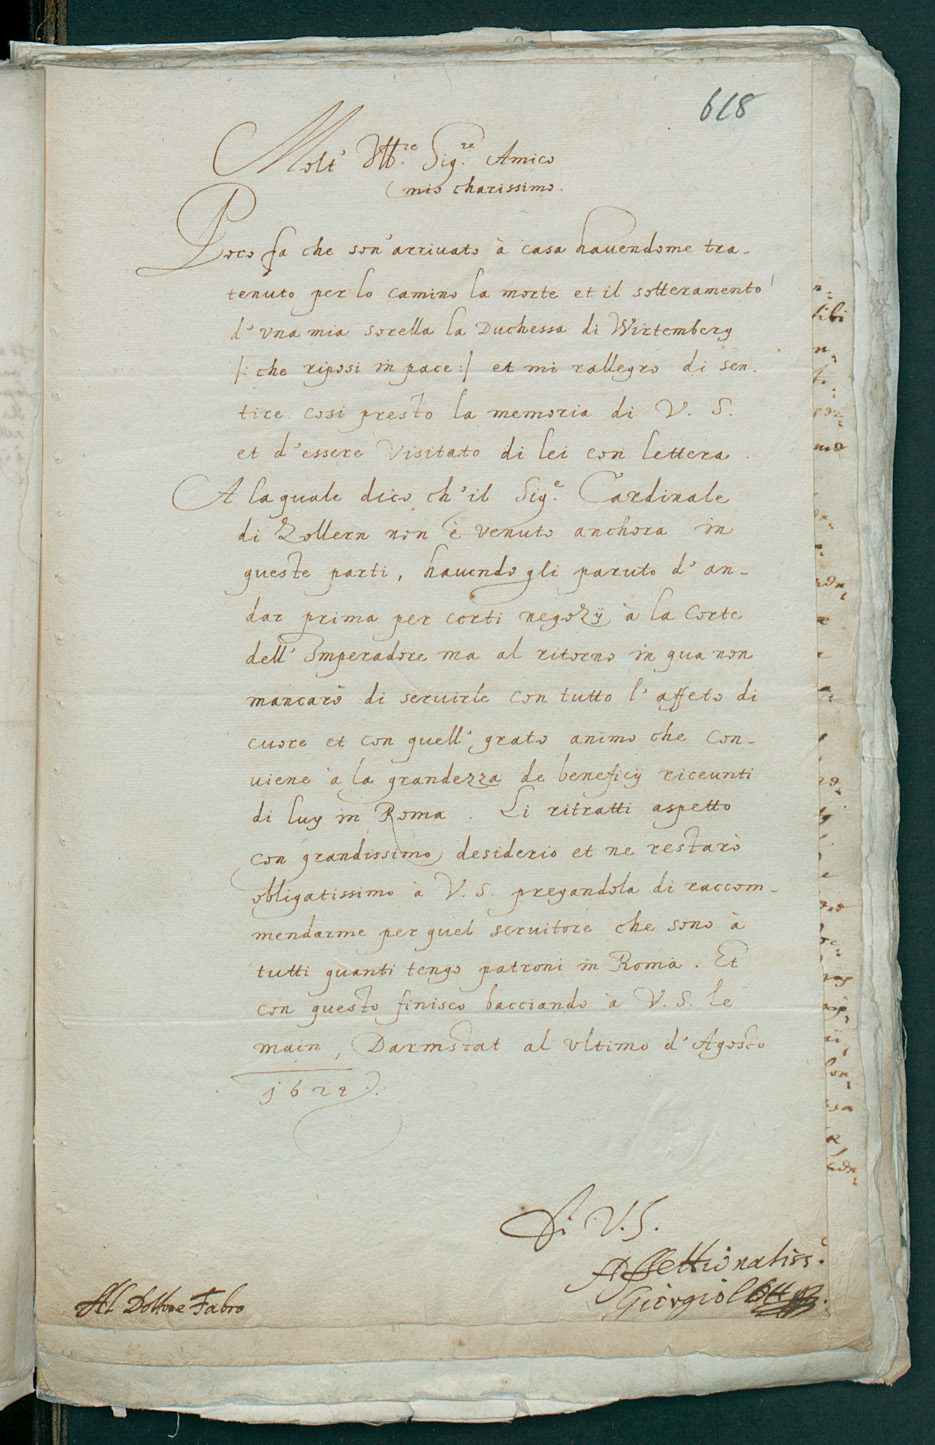 618
Molt' Ill.re Sig.re Amico
mio charissimo.
Poco fa che son' arrivato à casa havendome tra-
tenuto per lo camino la morte et il sotteramento
d'vna mia sorella la Duchessa di Wirtemberg
/: che riposi in pace :/ et mi rallegro di sen-
tire cosi presto la memoria di V. S.
et d'essere Visitato di lei con lettera.
A la quale dico ch'il Sig.e Cardinale
di Zollern non è venuto anchora in
queste parti, hauendo gli paruto d'an-
dar prima per certi negozÿ à la Corte
dell' Imperadore ma al ritorno in qua non
mancarò di seruirle con tutto l'affeto di
cuore et con quell' grato animo che con-
uiene à la grandezza de beneficÿ riceunti
di luy in Roma. Li ritratti aspetto
con grandissimo desiderio et ne restarò
obligatissimo à V. S. pregandola di raccom-
mendarme per quel seruitore che sono à
tutti quanti tengo patroni in Roma. Et
con questo finisco bacciando à V. S. le
main, Darmstat al vltimo d'Agosto
1622.
Di V. S.
Affettionatiss.o
Giorgio
Al Dottore Fabro